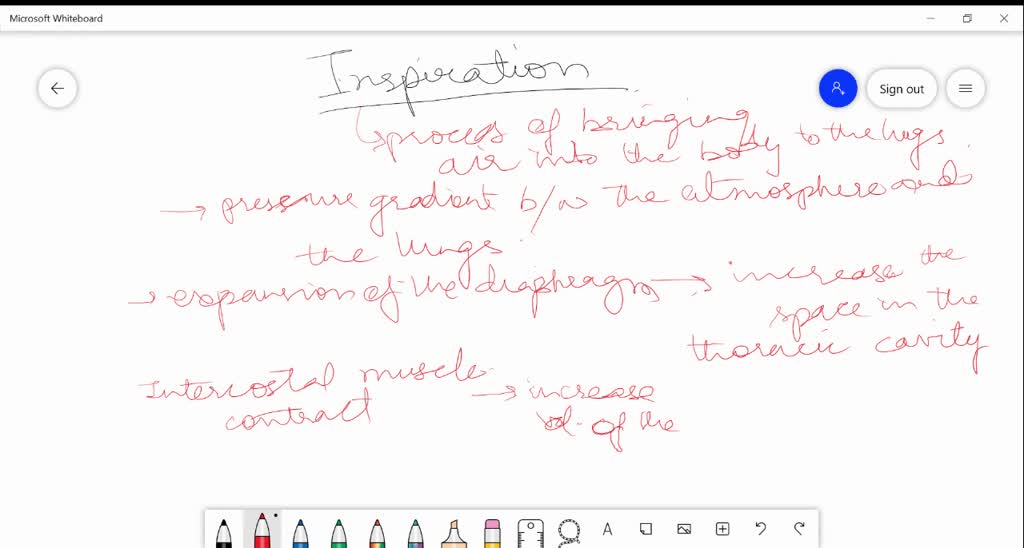 Microsoft Whiteboard
Sign out
Inspiration
↳ process of bringing
air into the body to the lungs.
→ pressure gradient b/w the atmosphere and
the lungs.
→ expansion of the diaphragm → increase the
space in the
thoracic cavity
Intercostal muscle → increase
contract vol. of the